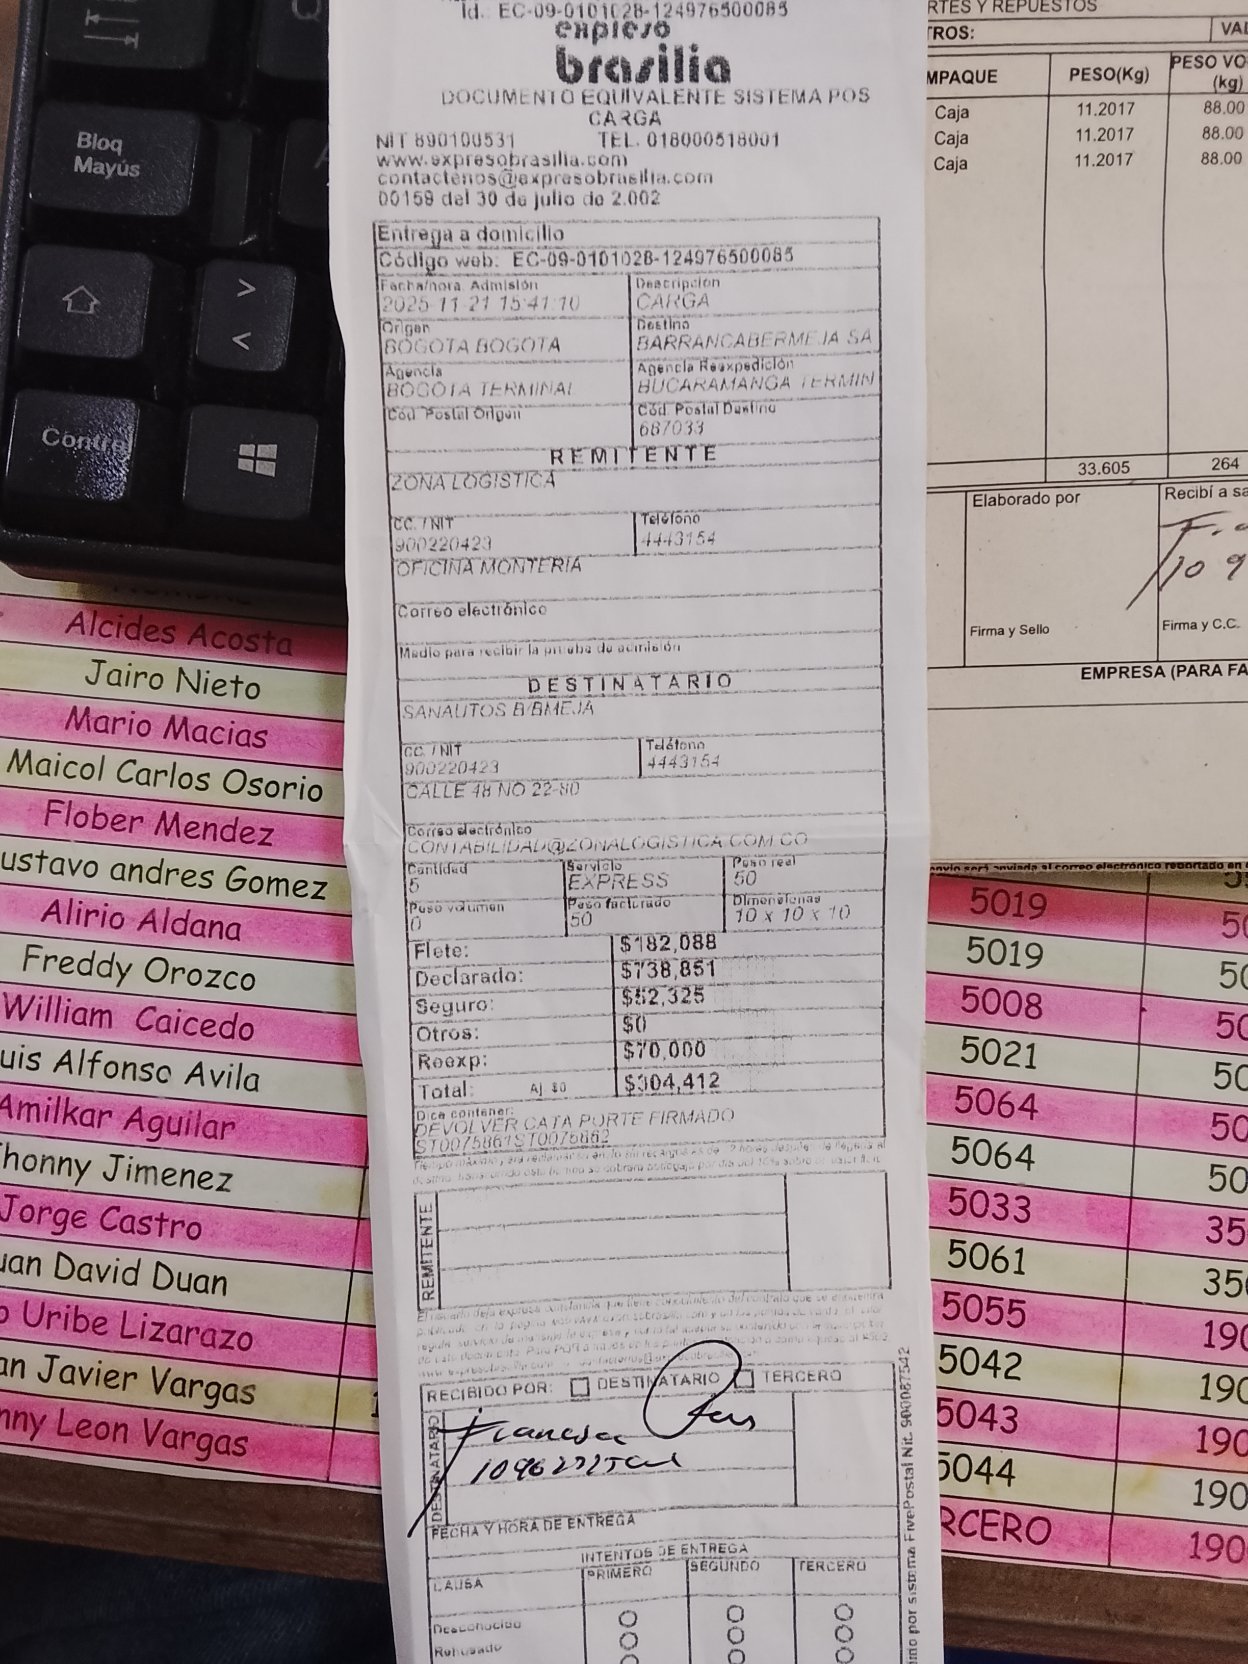 Id.: EC-09-0101028-124976500085
expreso
brasilia
DOCUMENTO EQUIVALENTE SISTEMA POS
CARGA
NIT 890100531 TEL. 018000518001
www.expresobrasilia.com
contactenos@expresobrasilia.com
00159 del 30 de julio de 2.002
Entrega a domicilio
Código web: EC-09-0101028-124976500085
Fecha/hora Admisión Descripción
2025-11-21 15:41:10 CARGA
Origen Destino
BOGOTA BOGOTA BARRANCABERMEJA SA
Agencia Agencia Reexpedición
BOGOTA TERMINAL BUCARAMANGA TERMIN
Cód. Postal Origen Cód. Postal Destino
687033
REMITENTE
ZONA LOGISTICA
CC. / NIT Teléfono
900220423 4443154
OFICINA MONTERIA
Correo electrónico
Medio para recibir la prueba de admisión
DESTINATARIO
SANAUTOS B/BMEJA
CC. / NIT Teléfono
900220423 4443154
CALLE 48 NO 22-80
Correo electrónico
CONTABILIDAD@ZONALOGISTICA.COM.CO
Cantidad Servicio Peso real
5 EXPRESS 50
Peso volumen Peso facturado Dimensiones
0 50 10 x 10 x 10
Flete: $182,088
Declarado: $738,851
Seguro: $52,325
Otros: $0
Reexp: $70,000
Total: Aj. $0 $304,412
Dice contener:
DEVOLVER CATA PORTE FIRMADO
ST0075861ST0075862
REMITENTE
RECIBIDO POR: DESTINATARIO TERCERO
DESTINATARIO
FECHA Y HORA DE ENTREGA
INTENTOS DE ENTREGA
CAUSA PRIMERO SEGUNDO TERCERO
Desconocido
Rehusado
por sistema FivePostal Nit. 900087542
Bloq
Mayús
>
<
Q
Alcides Acosta
Jairo Nieto
Mario Macias
Maicol Carlos Osorio
Flober Mendez
ustavo andres Gomez
Alirio Aldana
Freddy Orozco
William Caicedo
uis Alfonso Avila
Amilkar Aguilar
honny Jimenez
Jorge Castro
uan David Duan
o Uribe Lizarazo
an Javier Vargas
nny Leon Vargas
RTES Y REPUESTOS
TROS: VAL
MPAQUE PESO(Kg) PESO VO
(kg)
Caja 11.2017 88.00
Caja 11.2017 88.00
Caja 11.2017 88.00
33.605 264
Elaborado por Recibí a sa
Firma y Sello Firma y C.C.
EMPRESA (PARA FA
5019 50
5019 50
5008 50
5021 50
5064 50
5064 50
5033 35
5061 350
5055 190
5042 190
5043 190
5044 190
RCERO 190